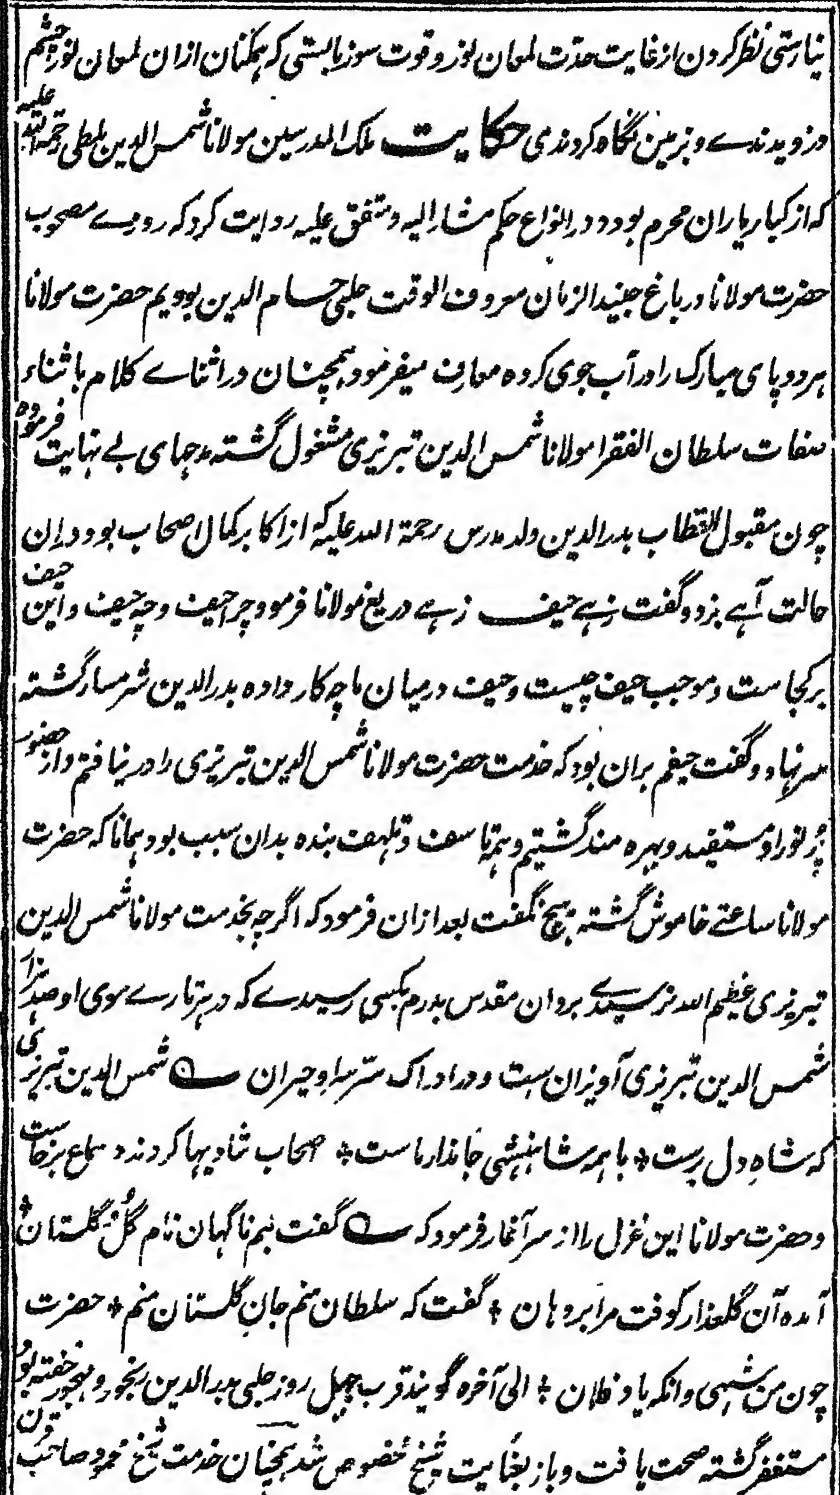 نیارستی نظر کردن از غایت حدّت لمعان نور و قوت سوز بایستی که همکنان ازان لمعان نور چشم
دزدیدندے و بزمین نگاه کردندی حکایت ملک المدرسین مولانا شمس الدین ملطی رحمة الله علیه
که از کبار یاران محرم بود و در انواع حکم مشار الیه و متفق علیه روایت کرد که روزے مصحوب
حضرت مولانا در باغ جنید الزمان معروف الوقت چلبی حسام الدین بودیم حضرت مولانا
هر دو پای مبارک را در آب جوی کرده معارف میفرمود همچنان در اثناے کلام با ثناء
صفات سلطان الفقرا مولانا شمس الدین تبریزی مشغول گشته مدحهای بے نهایت فرموده
چون مقبول الاقطاب بدر الدین ولد مدرس رحمة الله علیه که از اکابر کمال اصحاب بود دران
حالت آهے بزد و گفت زہے حیف زہے دریغ مولانا فرمود چرا حیف و چه حیف و این حیف
بر کجاست و موجب حیف چیست و حیف درمیان ما چه کار دارد بدر الدین شرمسار گشته
سر نهاد و گفت حیفم بران بود که خدمت حضرت مولانا شمس الدین تبریزی را در نیافتم و از حضور
پُر نور او مستفید و بهره مند نگشتیم و همه تاسف و تلهف بنده بدان سبب بود همانا که حضرت
مولانا ساعتے خاموش گشته هیچ نگفت بعد ازان فرمود که اگر چه بخدمت مولانا شمس الدین
تبریزی عظّم الله نرسیدے بروان مقدس پدرم بکسی رسیدے که در هر تارے موی او صد هزار
شمس الدین تبریزی آویزان ست و در ادراک سّر سراو حیران شمس الدین تبریزی
که شاهِ دل برست باهمه شاهنشهی جاندار ماست صحاب شادیها کردند و سماع برخاست
و حضرت مولانا این غزل را از سر آغاز فرمود که گفت لبم ناگهان نام گُل و گلستان
آمده آن گلعذار کوفت مرا بر دهان گفت که سلطان منم جان گلستان منم حضرت
چون من شهی وانگه یاد فلان الی آخره گویند قرب چهل روز چلبی بدر الدین رنجور و مهجور خفته بود
مستغفر گشته صحت یافت و باز بعنایت شیخ مخصوص شد همچنان خدمت شیخ محمود صاحب قران